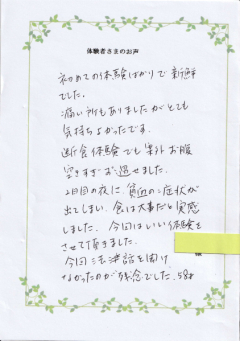 体験者さまのお声
初めての体験ばかりで新鮮
でした。
痛い所もありましたがとても
気持ちよかったです。
断食体験でも案外お腹
空きすぎず過せました。
2日目の夜に、貧血の症状が
出てしまい、食は大事だと実感
しました。今回はいい体験を
させて頂きました。
今回法話を聞け
なかったのが残念でした。58才
様